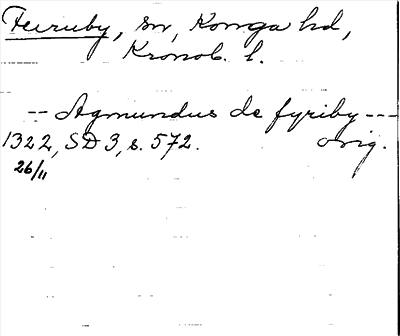 Furuby, sn, Konga hd,
Kronob. l.
-- Agmundus de fyriby ---
1322, SD 3, s. 572. orig.
26/11